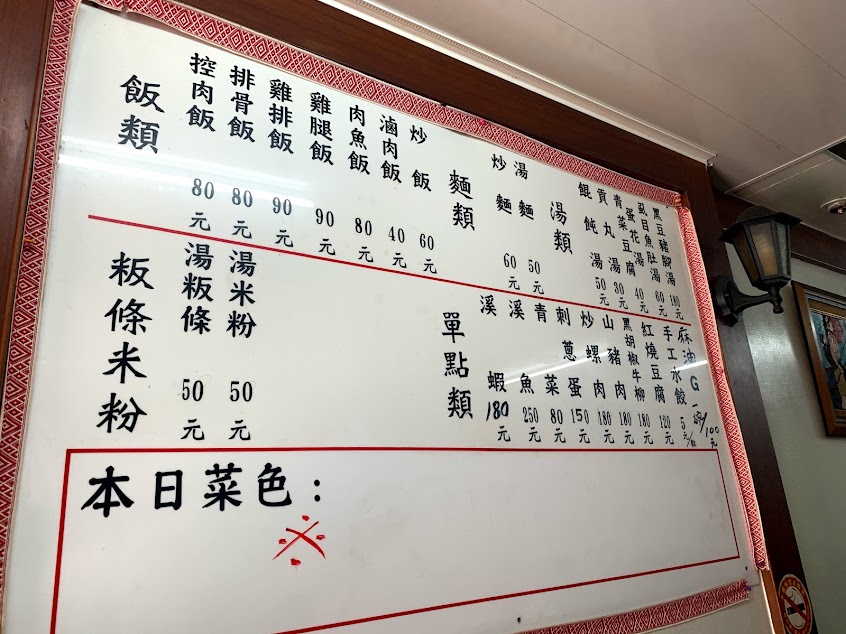 飯類
控肉飯 80元
排骨飯 80元
雞排飯 90元
雞腿飯 90元
肉魚飯 80元
滷肉飯 40元
炒飯 60元
麵類
炒麵 60元
湯麵 50元
湯類
餛飩湯 50元
貢丸湯 30元
青菜豆腐
蛋花湯 40元
虱目魚肚湯 60元
黑豆豬腳湯 180元
粄條米粉
湯粄條 50元
湯米粉 50元
單點類
溪蝦 180元
溪魚 250元
青菜 80元
刺蔥蛋 150元
炒螺肉 180元
山豬肉 180元
黑胡椒牛柳 180元
紅燒豆腐 120元
手工水餃 5元/
麻油G 一/100元
本日菜色：
※